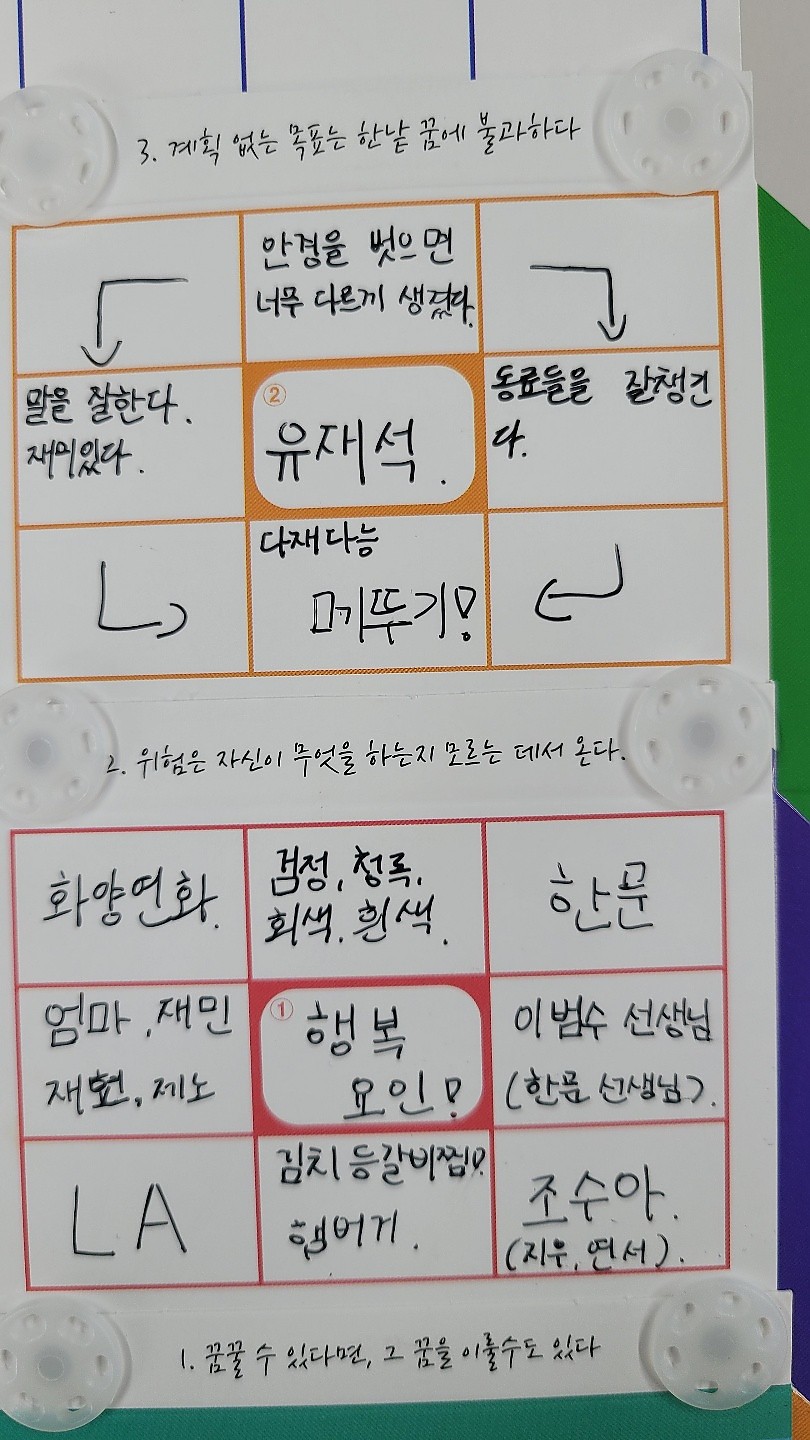 3. 계획 없는 목표는 한낱 꿈에 불과하다
안경을 벗으면
너무 다르게 생겼다.
말을 잘한다.
재미있다.
②
유재석.
동료들을 잘챙긴
다.
다재다능
메뚜기!
2. 위험은 자신이 무엇을 하는지 모르는 데서 온다.
화양연화.
검정, 청록,
회색, 흰색.
한문
엄마, 재민
재현, 제노
①
행복
요인!
이범수 선생님
(한문 선생님).
LA
김치등갈비찜!
햄버거.
조수아.
(지우, 연서).
1. 꿈꿀 수 있다면, 그 꿈을 이룰수도 있다